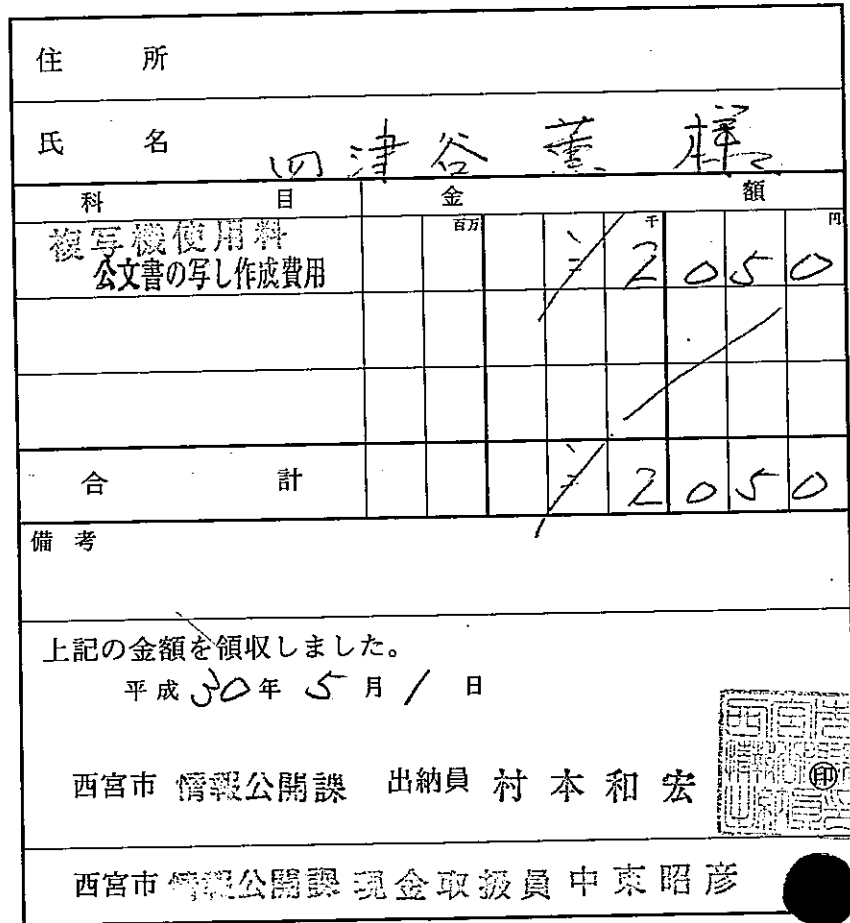 住 所
氏 名 四津谷 薫 様
科 目 金 額
百万 千 円
複写機使用料
公文書の写し作成費用 2050
合 計 2050
備 考
上記の金額を領収しました。
平成30年5月1日
西宮市 情報公開課 出納員 村本和宏 印
西宮市 情報公開課 現金取扱員 中東昭彦